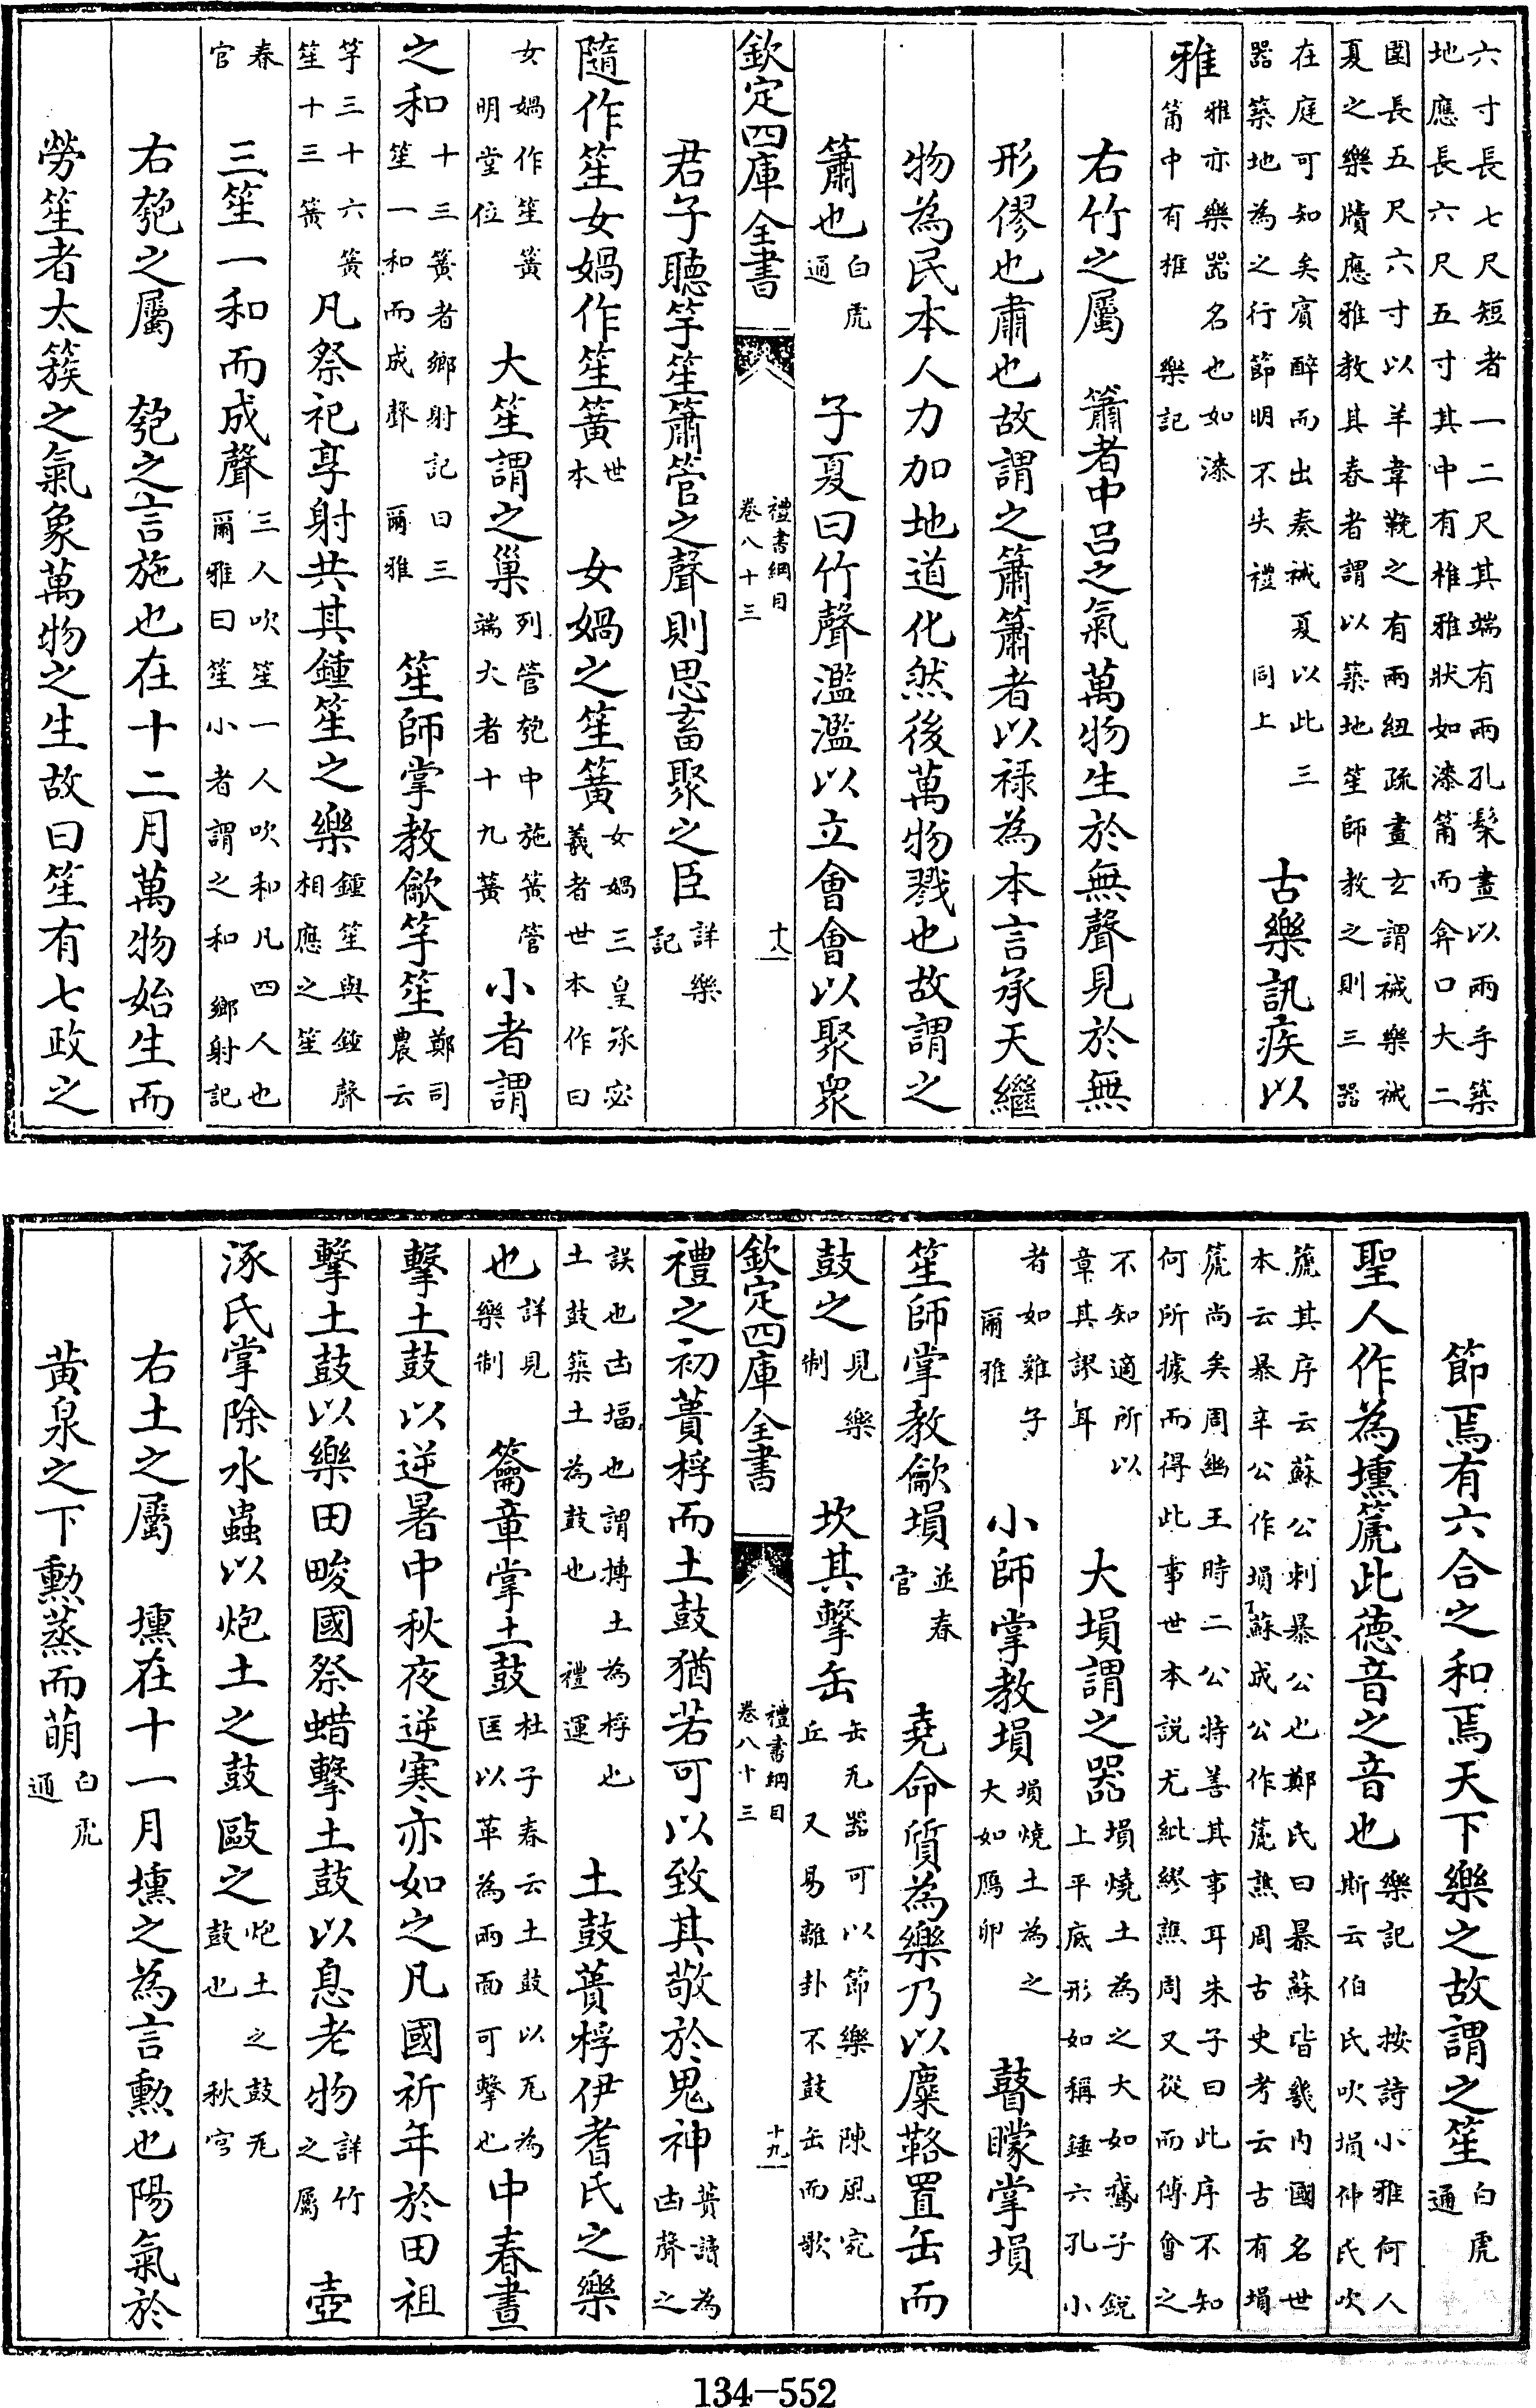 六寸長七尺短者一二尺其端有兩孔髹畫以兩手築
地應長六尺五寸其中有椎雅狀如漆筩而弇口大二
圍長五尺六寸以羊韋鞔之有兩紐疏畫玄謂祴樂祴
夏之樂牘應雅教其舂者謂以築地笙師教之則三器
在庭可知矣賓醉而出奏祴夏以此三器築地為之行節明不失禮 同上 古樂訊疾以
雅 雅亦樂器名也如漆筩中有椎 樂記
右竹之屬 簫者中呂之氣萬物生於無聲見於無
形僇也肅也故謂之簫簫者以禄為本言承天繼
物為民本人力加地道化然後萬物戮也故謂之
簫也 白虎通 子夏曰竹聲濫濫以立會會以聚衆
欽定四庫全書 禮書綱目 卷八十三 十八
君子聽竽笙簫管之聲則思畜聚之臣 詳樂記
隨作笙女媧作笙簧 世本 女媧之笙簧 女媧三皇承宓羲者世本作曰
女媧作笙簧 明堂位 大笙謂之巢 列管匏中施簧管端大者十九簧 小者謂
之和 十三簧者鄉射記曰三笙一和而成聲 爾雅 笙師掌教龡竽笙 鄭司農云
竽三十六簧笙十三簧 凡祭祀享射共其鍾笙之樂 鍾笙與鍾聲相應之笙
春官 三笙一和而成聲 三人吹笙一人吹和凡四人也爾雅曰笙小者謂之和 鄉射記
右匏之屬 匏之言施也在十二月萬物始生而
勞笙者太簇之氣象萬物之生故曰笙有七政之
節焉有六合之和焉天下樂之故謂之笙 白虎通
聖人作為壎篪此德音之音也 樂記 按詩小雅何人斯云伯氏吹塤仲氏吹
篪其序云蘇公刺暴公也鄭氏曰暴蘇皆畿内國名世
本云暴辛公作塤蘇成公作篪譙周古史考云古有塤
篪尚矣周幽王時二公特善其事耳朱子曰此序不知
何所據而得此事世本説尤紕繆譙周又從而傅會之
不知適所以章其謬耳 大塤謂之嘂 塤燒土為之大如鵞子鋭上平底形如稱錘六孔小
者如雞子 爾雅 小師掌教塤 塤燒土為之大如鴈卵 瞽矇掌塤
笙師掌教龡塤 並春官 堯命質為樂乃以麋䩻置缶而
鼓之 見樂制 坎其擊缶 缶瓦器可以節樂 陳風宛丘 又易離卦不鼓缶而歌
欽定四庫全書 禮書綱目 卷八十三 十九
禮之初蕢桴而土鼓猶若可以致其敬於鬼神 蕢讀為凷聲之
誤也凷堛也謂搏土為桴也土鼓築土為鼓也 禮運 土鼓蕢桴伊耆氏之樂
也 詳見樂制 籥章掌土鼓 杜子春云土鼓以瓦為匡以革為兩面可擊也 中春晝
擊土鼓以逆暑中秋夜逆寒亦如之凡國祈年於田祖
擊土鼓以樂田畯國祭蜡擊土鼓以息老物 詳竹之屬 壺
涿氏掌除水蟲以炮土之鼓敺之 炮土之鼓瓦鼓也 秋官
右土之屬 壎在十一月壎之為言勲也陽氣於
黄泉之下勲蒸而萌 白虎通
134-552